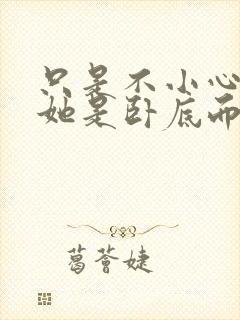 只是不小心
她是卧底而
葛荟婕